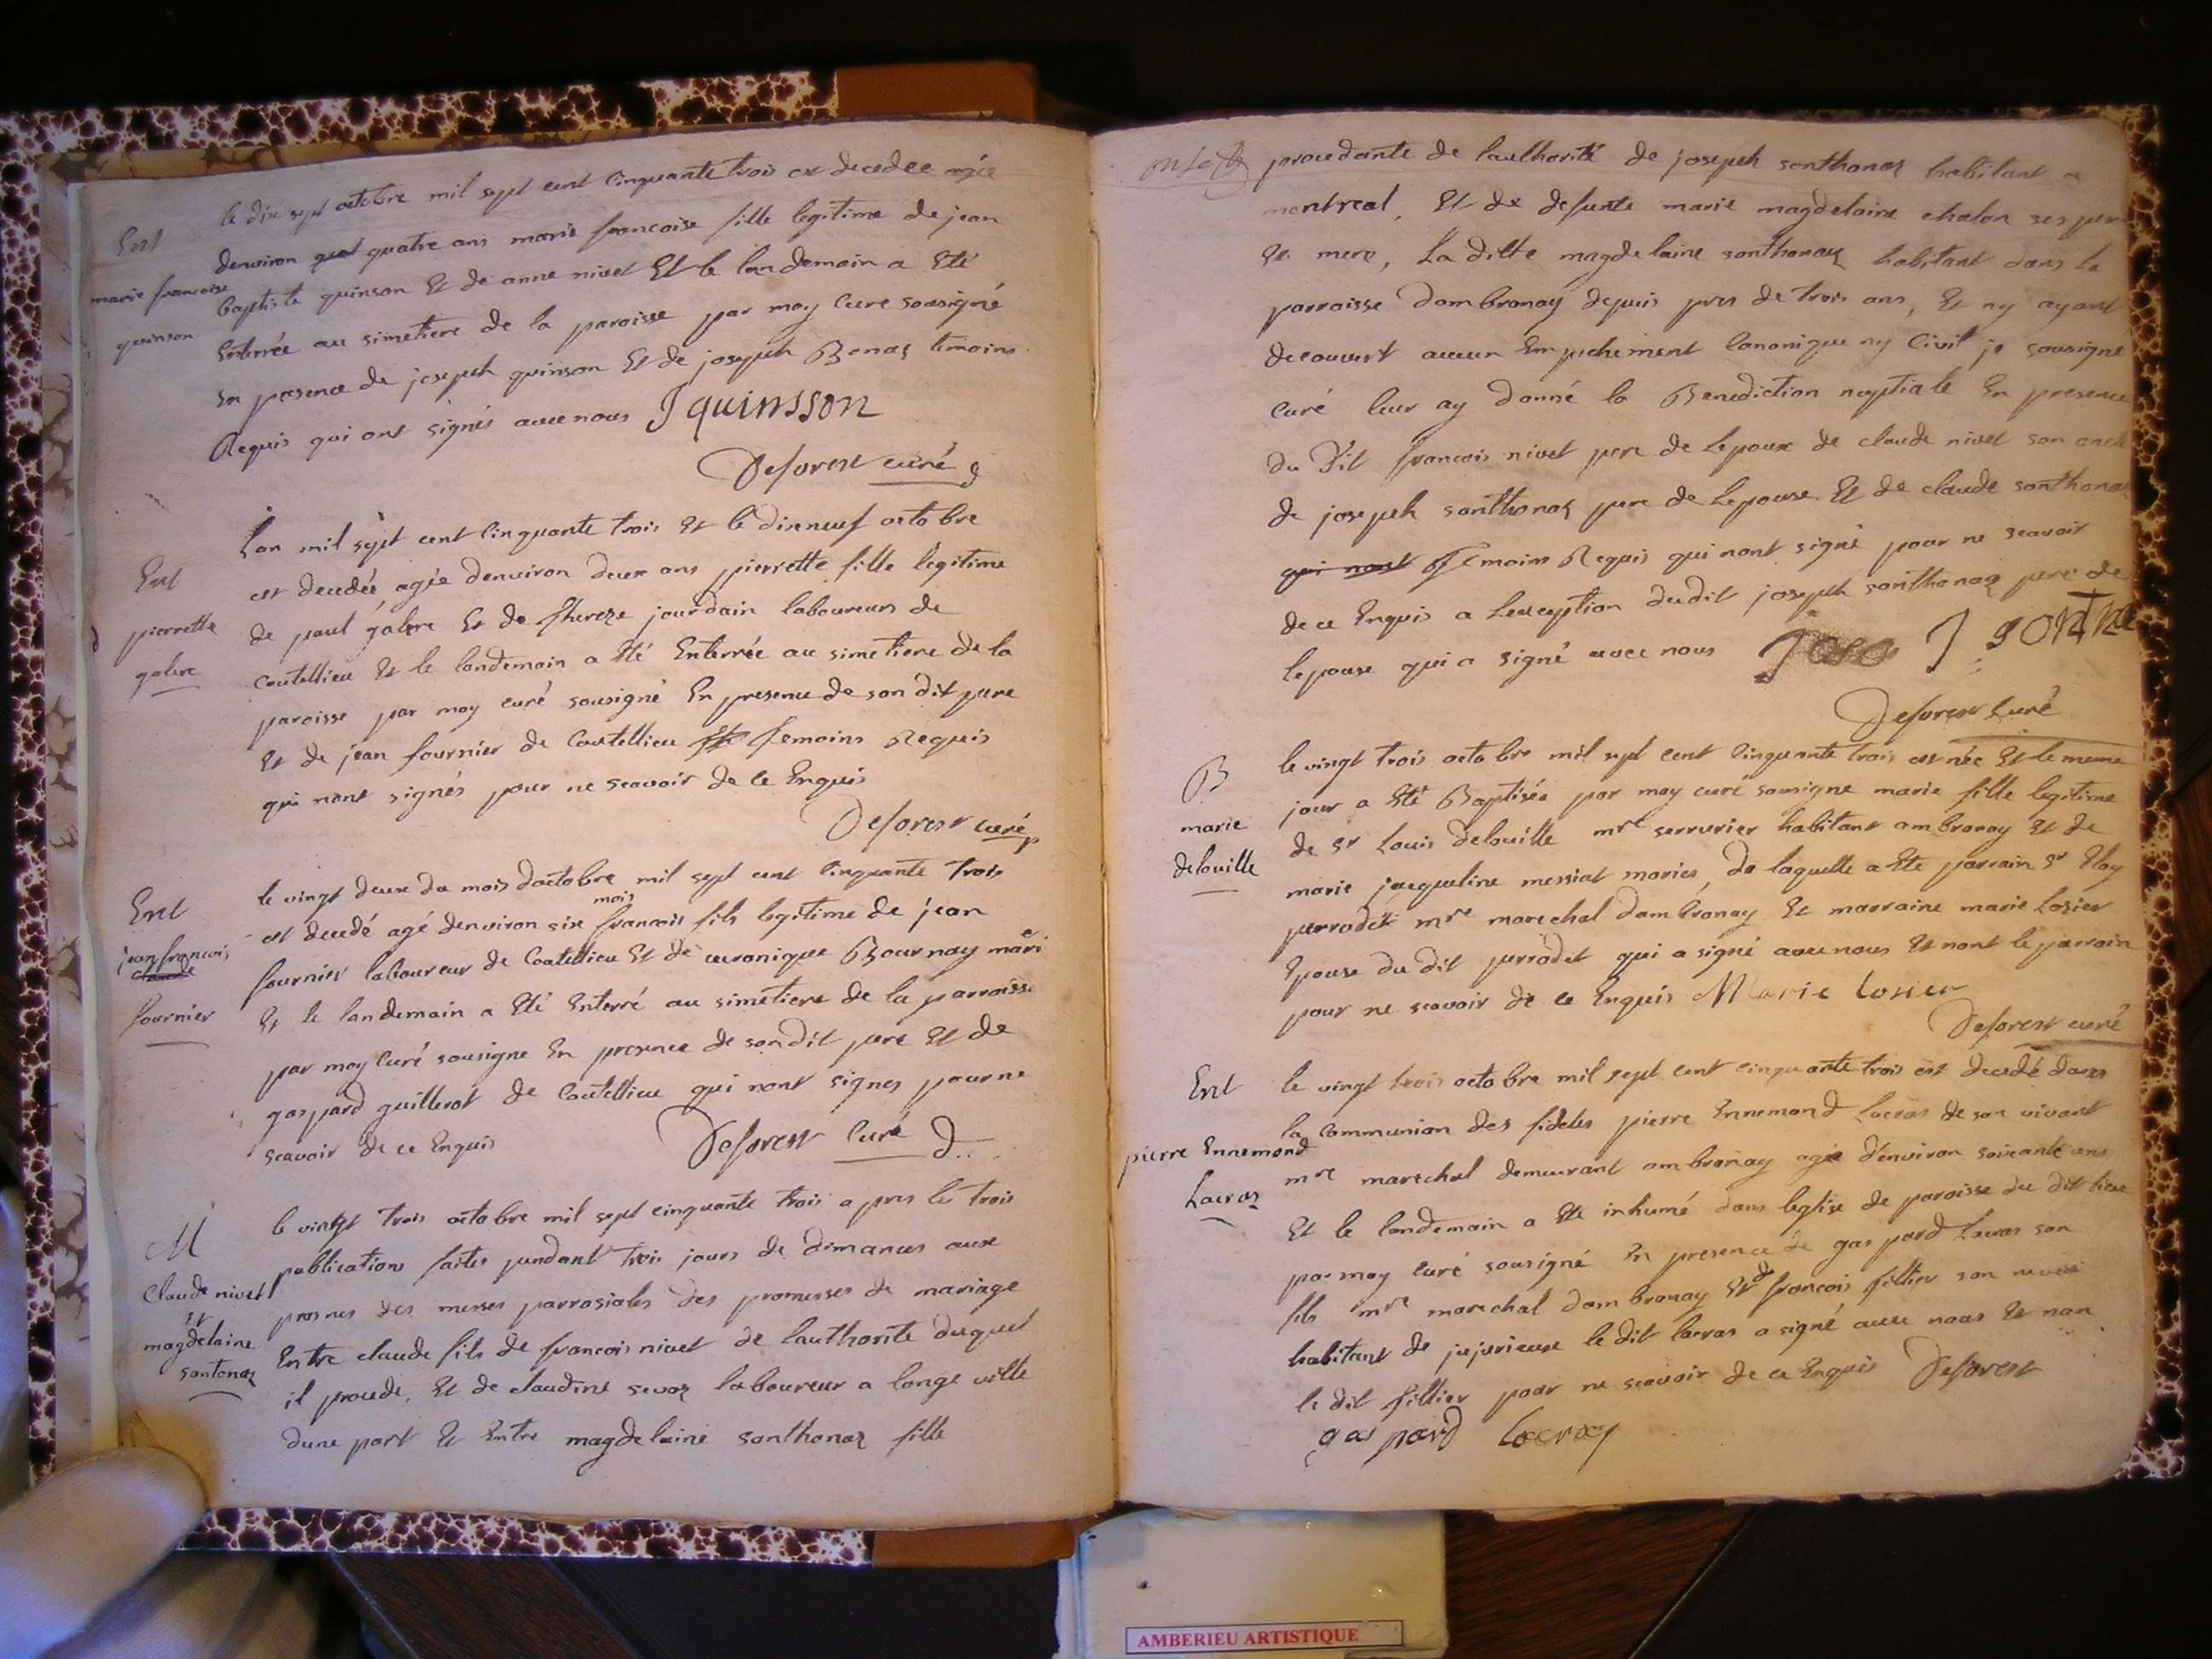 Ent
marie francoise
quinson
le dix sept octobre mil sept cent cinquante trois est decedée agée
denviron quat quatre ans marie francoise fille legitime de jean
baptiste quinson Et de anne nivet Et le landemain a Eté
Enterrée au simetiere de la paroisse par moy Curé sousigné
En presence de joseph quinson Et de joseph Bonaz temoins
Requis qui ont signés avec nous J quinsson
Deforest curé
Ent
pierrette
galere
Lan mil sept cent cinquante trois Et le dixneuf octobre
est decedée agée denviron deux ans pierrette fille legitime
de paul galere Et de thereze jourdain laboureurs de
Coutellieu Et le landemain a Eté Enterrée au simetiere de la
paroisse par moy curé sousigné En presence de son dit pere
Et de jean fournier de Coutellieu temoins Requis
qui nont signés pour ne scavoir de ce Enquis
Deforest curé
Ent
jean francois
claude
fournier
le vingt deux du mois doctobre mil sept cent cinquante trois
est decedé agé denviron six mois francois fils legitime de jean
fournier laboureur de Coutellieu Et de veronique Bournay mariés
Et le landemain a Eté Enterré au simetiere de la parroisse
par moy Curé sousigne En presence de son dit pere Et de
gaspard guillerot de Coutellieu qui nont signes pour ne
scavoir de ce Enquis Deforest Curé
M
Claude nivet
Et
magdelaine
santonaz
le vingt trois octobre mil sept cinquante trois apres les trois
publications faites pendant trois jours de dimances aux
prosnes des messes parrosiales des promesses de mariage
Entre claude fils de francois nivet de lauthorité duquel
il procede, Et de claudine sevoz laboureur a longe ville
dune part Et Entre magdelaine santhonaz fille
procedante de lauthorité de joseph sonthonaz habitant a
montreal, Et de defunte marie magdelaine chalon ses pere
Et mere, La ditte magdelaine sonthonaz habitant dans la
parroisse dambronay depuis pres de trois ans, Et ny ayant
decouvert aucun Empechement Canonique ny Civil je sousigne
Curé leur ay donné la Benediction nuptiale En presence
du dit francois nivet pere de Lepoux de claude nivet son oncle
de joseph santhonaz pere de Lepouse Et de claude santhonaz
qui nont temoins Requis qui nont signé pour ne scavoir
de ce Enquis a Lexception dudit joseph santhonaz pere de
lepouse qui a signé avec nous J SONTNA
Deforest Curé
B
marie
delouille
le vingt trois octobre mil sept cent cinquante trois est née Et le meme
jour a Eté Baptisée par moy curé sousigne marie fille legitime
de sr Louis delouille mre serrurier habitant ambronay Et de
marie jacqueline messiat mariés, de laquelle a Eté parrain sr Eloy
perrodet mre marechal dambronay Et marraine marie Losier
Epouse du dit perrodet qui a signé avec nous Et nont le parrain
pour ne scavoir de ce Enquis Marie Losier
Deforest curé
Ent
pierre Ennemond
Lacraz
le vingt trois octobre mil sept cent cinquante trois est decedé dans
la Communion des fideles pierre Ennemond Lacras de son vivant
mre marechal demeurant ambronay agé d'environ soixante ans
Et le landemain a Eté inhumé dans leglise de paroisse du dit lieu
par moy curé sousigné En presence de gaspard Lacras son
fils mre marechal dambronay Et de francois fillier son neveu
habitant de jujurieux le dit lacras a signé avec nous Et non
le dit fillier pour ne scavoir de ce Enquis Deforest
gaspard Lacraz
AMBERIEU ARTISTIQUE